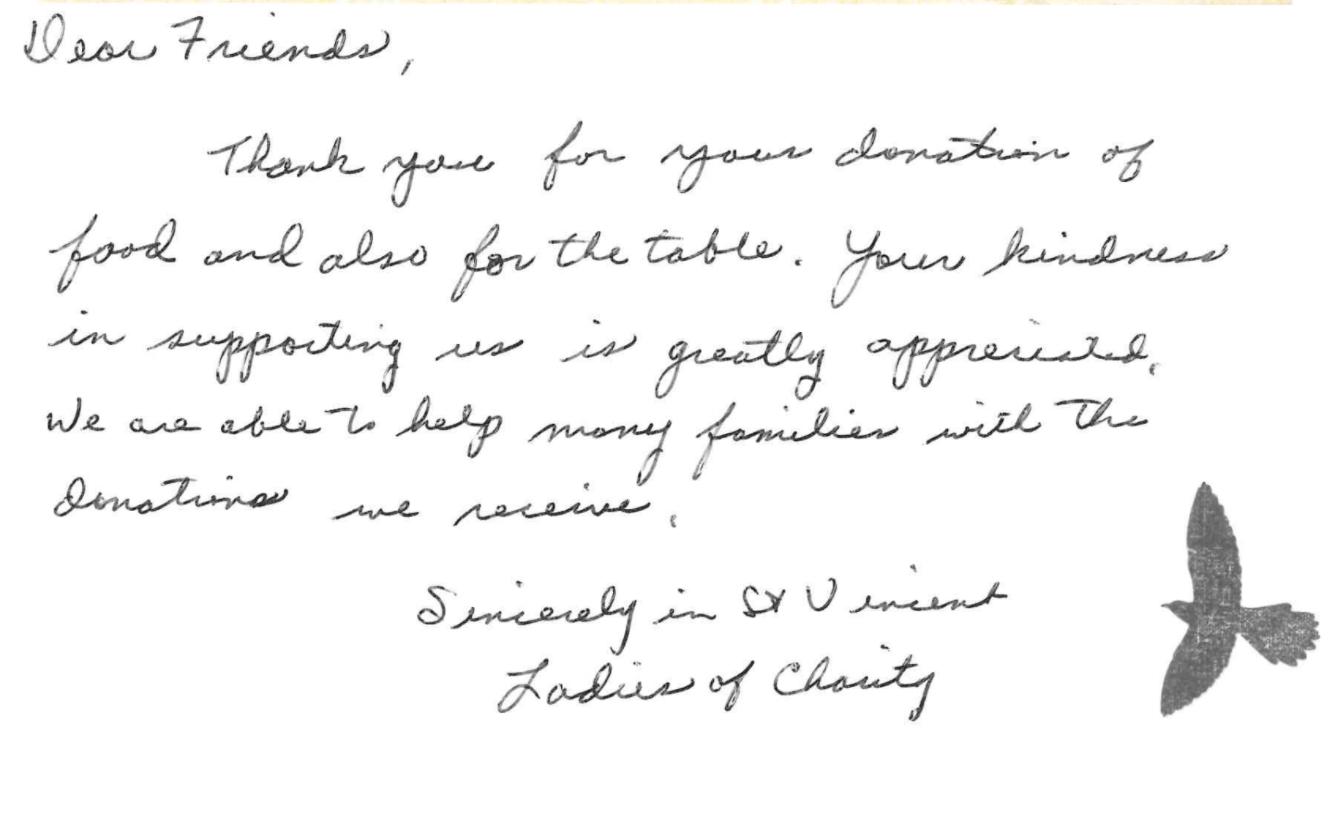 Dear Friends,
Thank you for your donation of
food and also for the table. Your kindness
in supporting us is greatly appreciated.
We are able to help many families with the
donations we receive.
Sincerely in St Vincent
Ladies of Charity